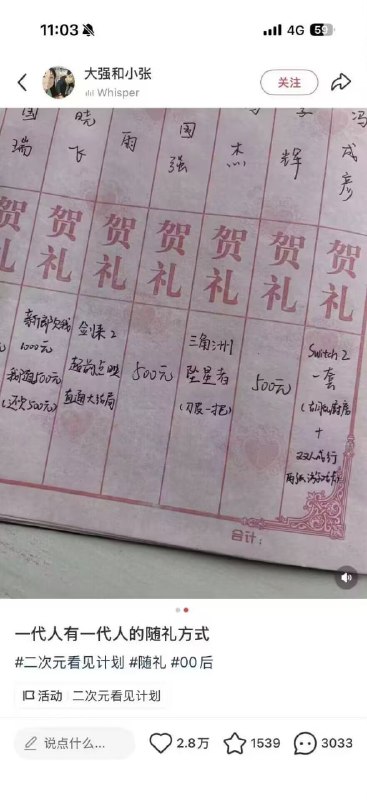 11:03
4G 59
大强和小张
Whisper
关注
国 晓 冯
瑞 飞 雨 国强 杰 辉 成彦
贺礼 贺礼 贺礼 贺礼 贺礼 贺礼 贺礼
新郎欠我
1000元
我随500元
(还欠500元)
剑来2
超前点映
直通大结局
500元
三角洲
坠星者
(刀皮一把)
500元
Switch 2
一套
(胡闹厨房
+
双人成行
两张游戏卡)
合计:
一代人有一代人的随礼方式
#二次元看见计划 #随礼 #00后
活动 二次元看见计划
说点什么...
2.8万
1539
3033